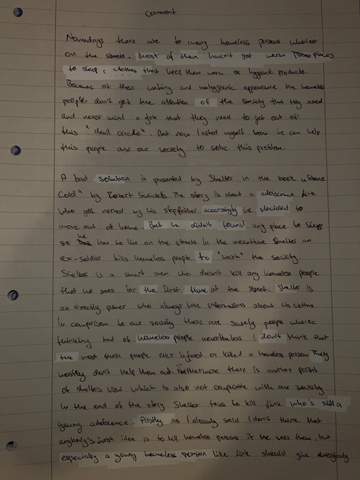 Comment
Nowadays there are to many homeless persons
on the streets. Most of them haven't got
to sleep, clothes that keep them warm or hygienic products.
Because of these and appearance the homeless
people don't get the attention of the society that they need
and never want a job that they need to get out of
this "devil circle". But now I asked myself how we can help
this people and our society to solve this problem.
A bad solution is presented by Shelter in the book "Stone
Cold" by Robert Swindells. The story is about a adolescence Link
who get by his stepfather accordingly he decided to
move out of home. But he didn't found any place be
so he has to live on the streets in the
ex-soldier kills homeless people to the society
Shelter is a smart man who doesn't kill any homeless people
that he sees for the first time at the street. Shelter is
an exactly planer who always has informations about his victims
In comparison to our society there are people who
thinking bad of homeless people nevertheless I don't think that
the most these people ever injured or killed a homeless person They
mostly don't help them out. Furthermore there is another
of Shelters which is also not comparable with our society
In the end of the story Shelter tries to kill Link who's still a
young adolescence. As I already said I don't think that
anybody's first idea is to kill homeless persons if he sees them but
especially a young homeless person like Link should give everybody